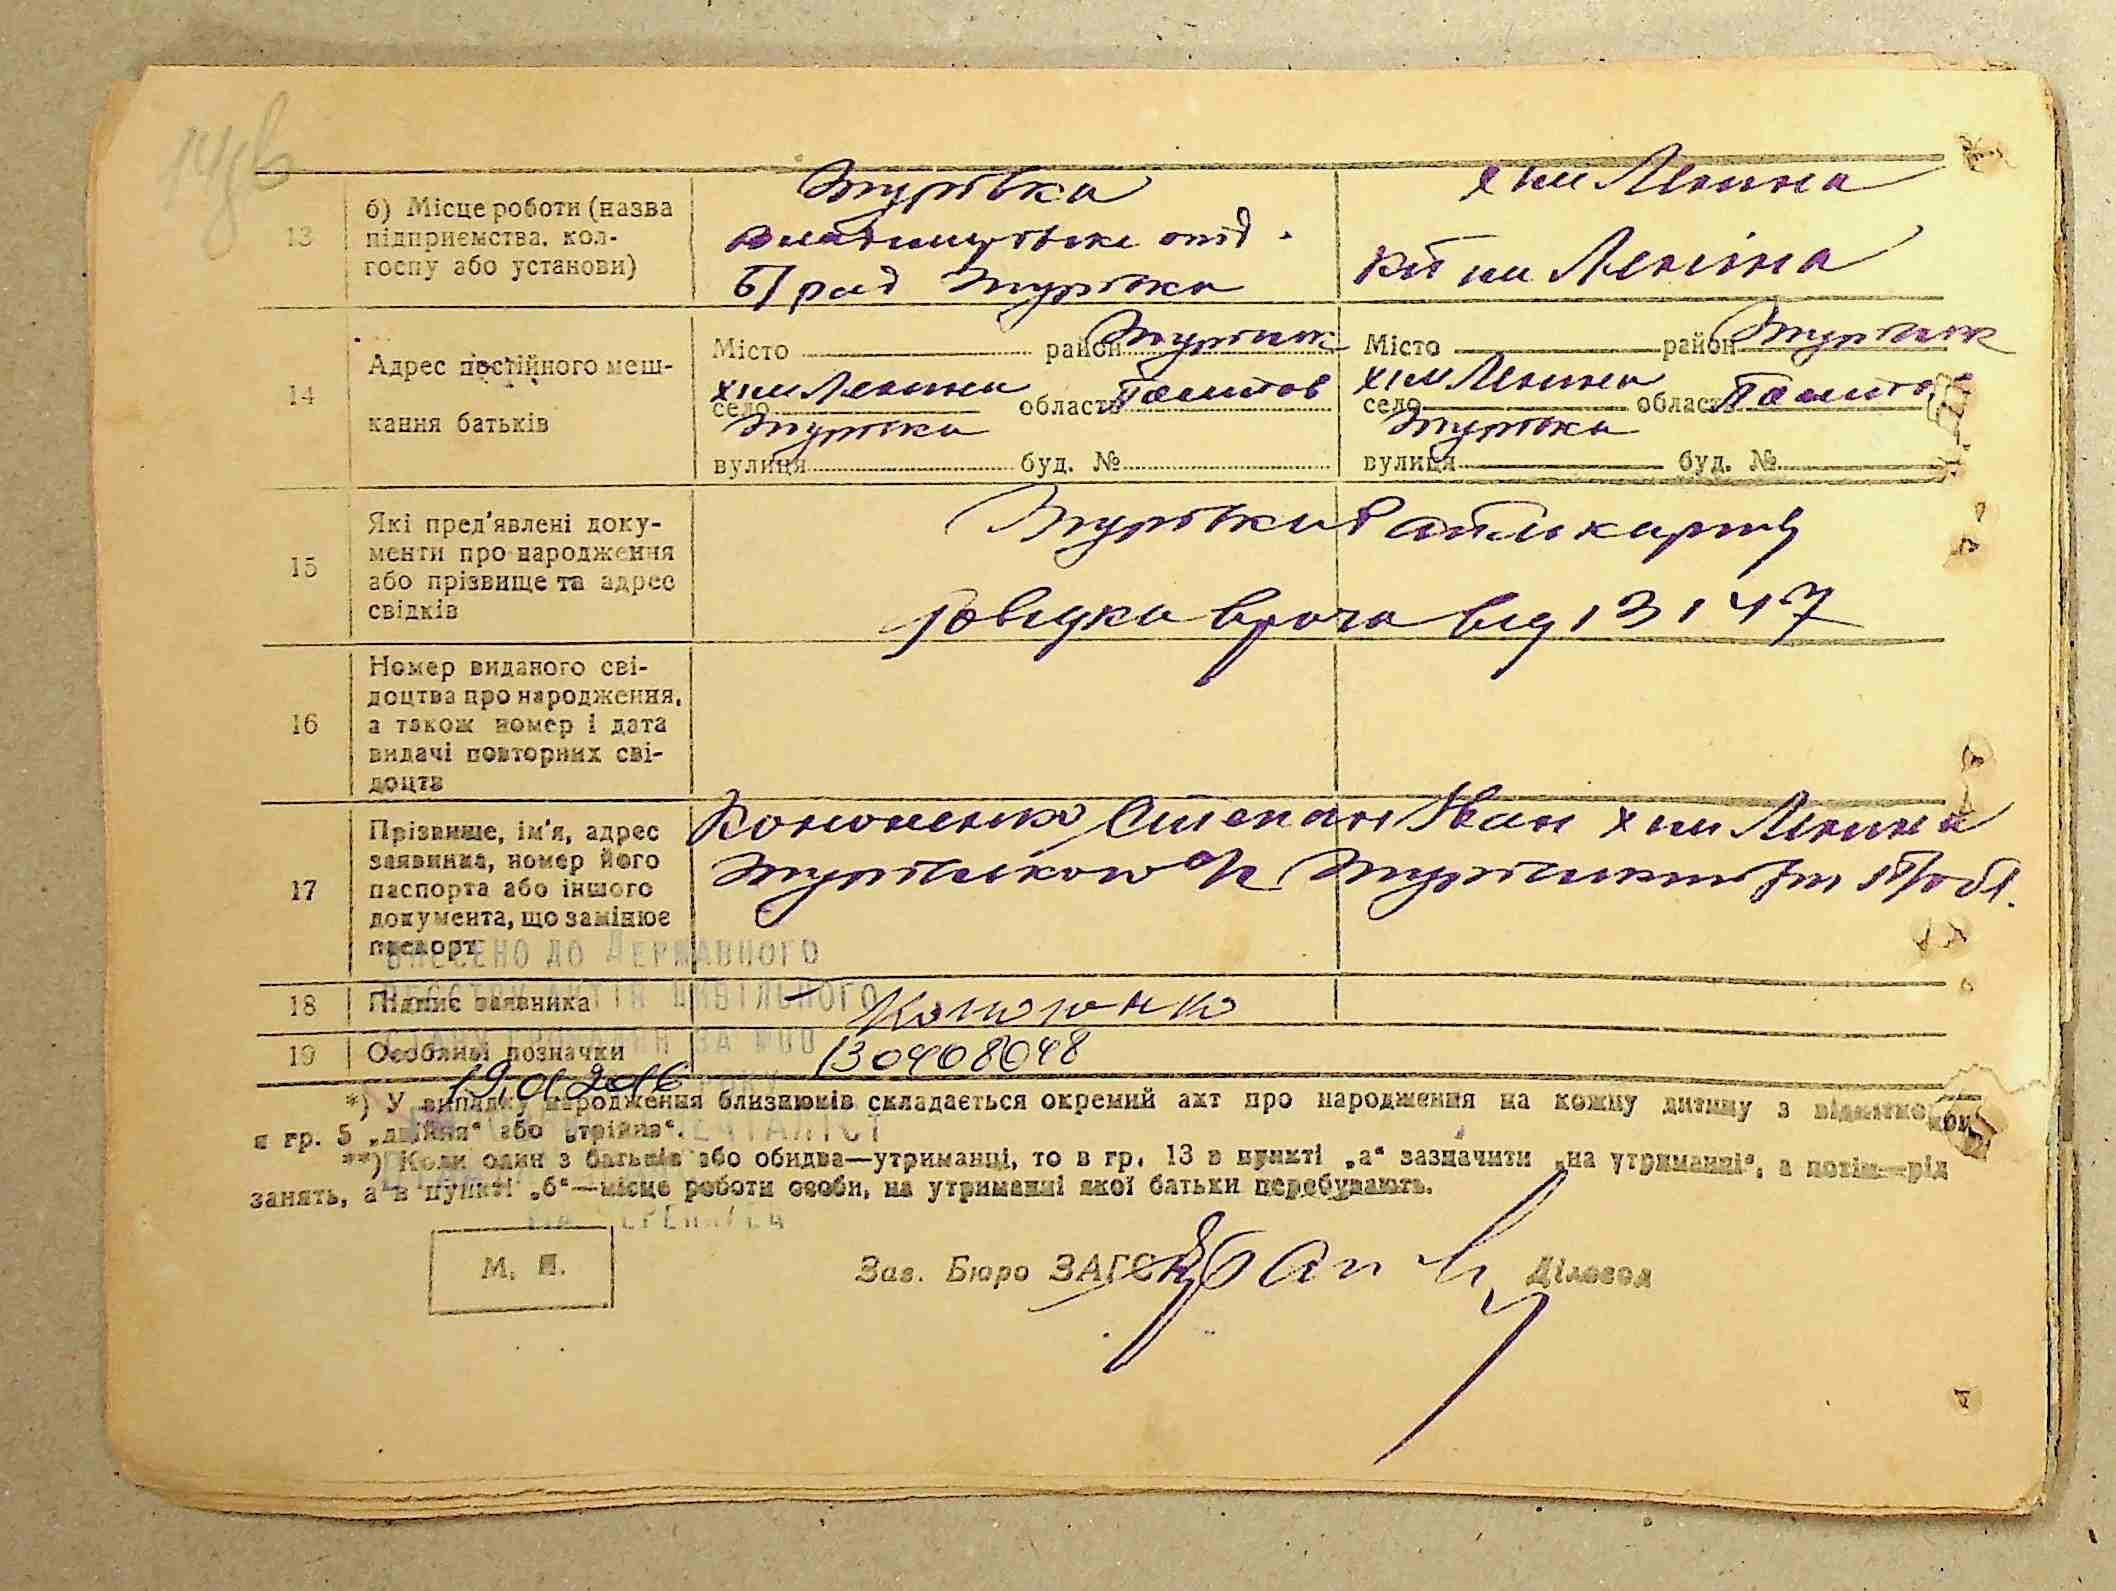 13
б) Місце роботи (назва
підприємства, кол-
госпу або установи)
Згурівка
отд.
Б/рад Згурівка
х им Ленина
к-п им Леніна
14
Адрес постійного меш-
кання батьків
Місто район Згурівськ
х им Ленина область Полтав
село Згурівка
вулиця буд. №
Місто район Згурівськ
х им Ленина область Полтав
село Згурівка
вулиця буд. №
15
Які пред'явлені доку-
менти про народження
або прізвище та адрес
свідків
Згурівка
Довідка врача від 13 1 47
16
Номер виданого сві-
доцтва про народження,
а також номер і дата
видачі повторних сві-
доцтв
17
Прізвище, ім'я, адрес
заявника, номер його
паспорта або іншого
документа, що замінює
паспорт
Кононенко Степан Іван х им Ленина
18
Підпис заявника
Кононенко
19
Особливі позначки
130408048
ВНЕСЕНО ДО ДЕРЖАВНОГО
РЕЄСТРУ АКТІВ ЦИВІЛЬНОГО
СТАНУ ГРОМАДЯН ЗА №
19.01.2016
*) У випадку народження близнюків складається окремий акт про народження на кожну дитину з відміткою
в гр. 5 „двійня“ або „трійня“.
**) Коли один з батьків або обидва—утриманці, то в гр. 13 в пункті „а“ зазначити „на утриманні“, а потім—рід
занять, а в пункті „б“—місце роботи особи, на утриманні якої батьки перебувають.
М. П.
Зав. Бюро ЗАГС
Діловод